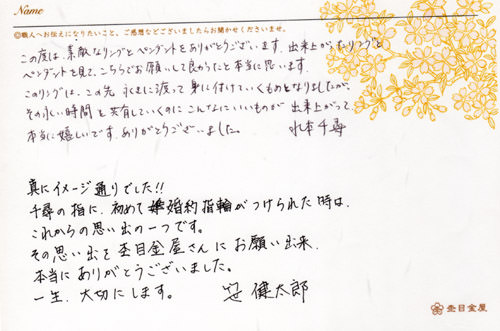 Name
◎職人へお伝えになりたいこと、ご感想などございましたらお聞かせくださいませ。
この度は、素敵なリングとペンダントをありがとうございます。出来上がったリングと
ペンダントを見て、こちらでお願いして良かったと本当に思います。
このリングは、この先 永えに渡って 身に付けていくものとなりましたが、
その永い時間を共有していくのに こんなにいいものが 出来上がって
本当に嬉しいです。ありがとうございました。 水本千尋
真にイメージ通りでした!!
千尋の指に、初めて 婚約指輪が つけられた時は、
これからの思い出の一つです。
その思い出を 杢目金屋さんに お願い出来、
本当にありがとうございました。
一生、大切にします。 笹 健太郎
杢目金屋